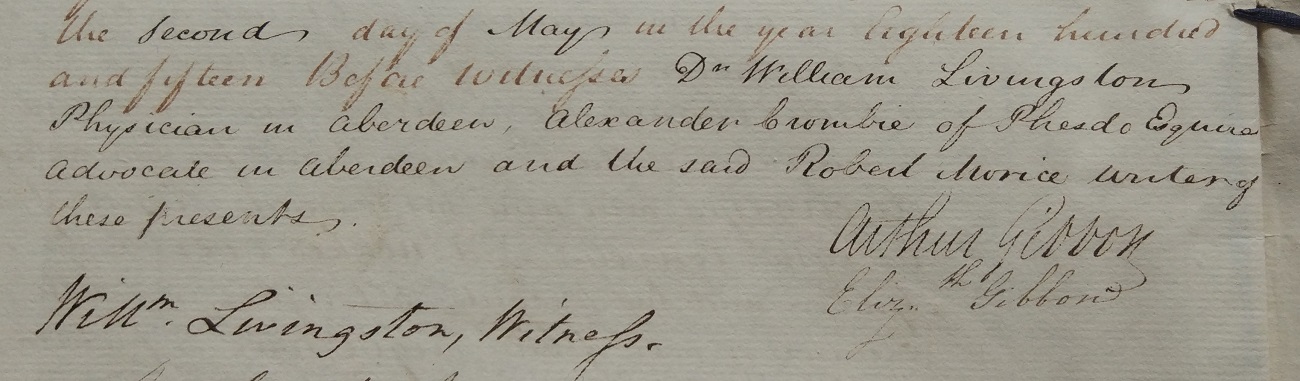 the second day of May in the year Eighteen hundred
and fifteen Before witnesses Dr William Livingston
Physician in Aberdeen, Alexander Crombie of Phesdo Esquire
advocate in Aberdeen and the said Robert Morice writer of
these presents.
Arthur Gibbon
Elizth Gibbon
Willm. Livingston, Witness.